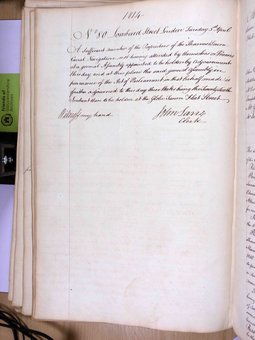 1814
No. 80 Lombard Street London Tuesday 5th April
A sufficient number of the Proprietors of the Thames Severn
Canal Navigation not having attended by themselves or Proxies
at a general Assembly appointed to be holden by adjournment
this day and at this place the said general Assembly in
pursuance of the Act of Parliament in that behalf made is
further adjourned to this day three Weeks being the twenty sixth
Instant then to be holden at the Globe Tavern Fleet Street
Witness my hand
John Lane
Clerk
Friends of